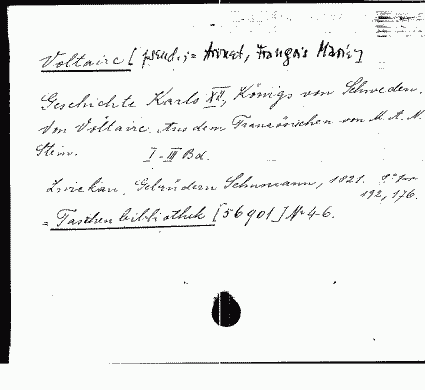 Voltaire [pseud.; = Arouet, François Marie]
Geschichte Karls XII, Königs von Schweden.
Von Voltaire. Aus dem Französischen von M. A. M.
Stein. I - III Bd.
Zwickau, Gebrüdern Schumann, 1821.
192, 176.
= Taschenbibliothek [56901] Nr 4-6.